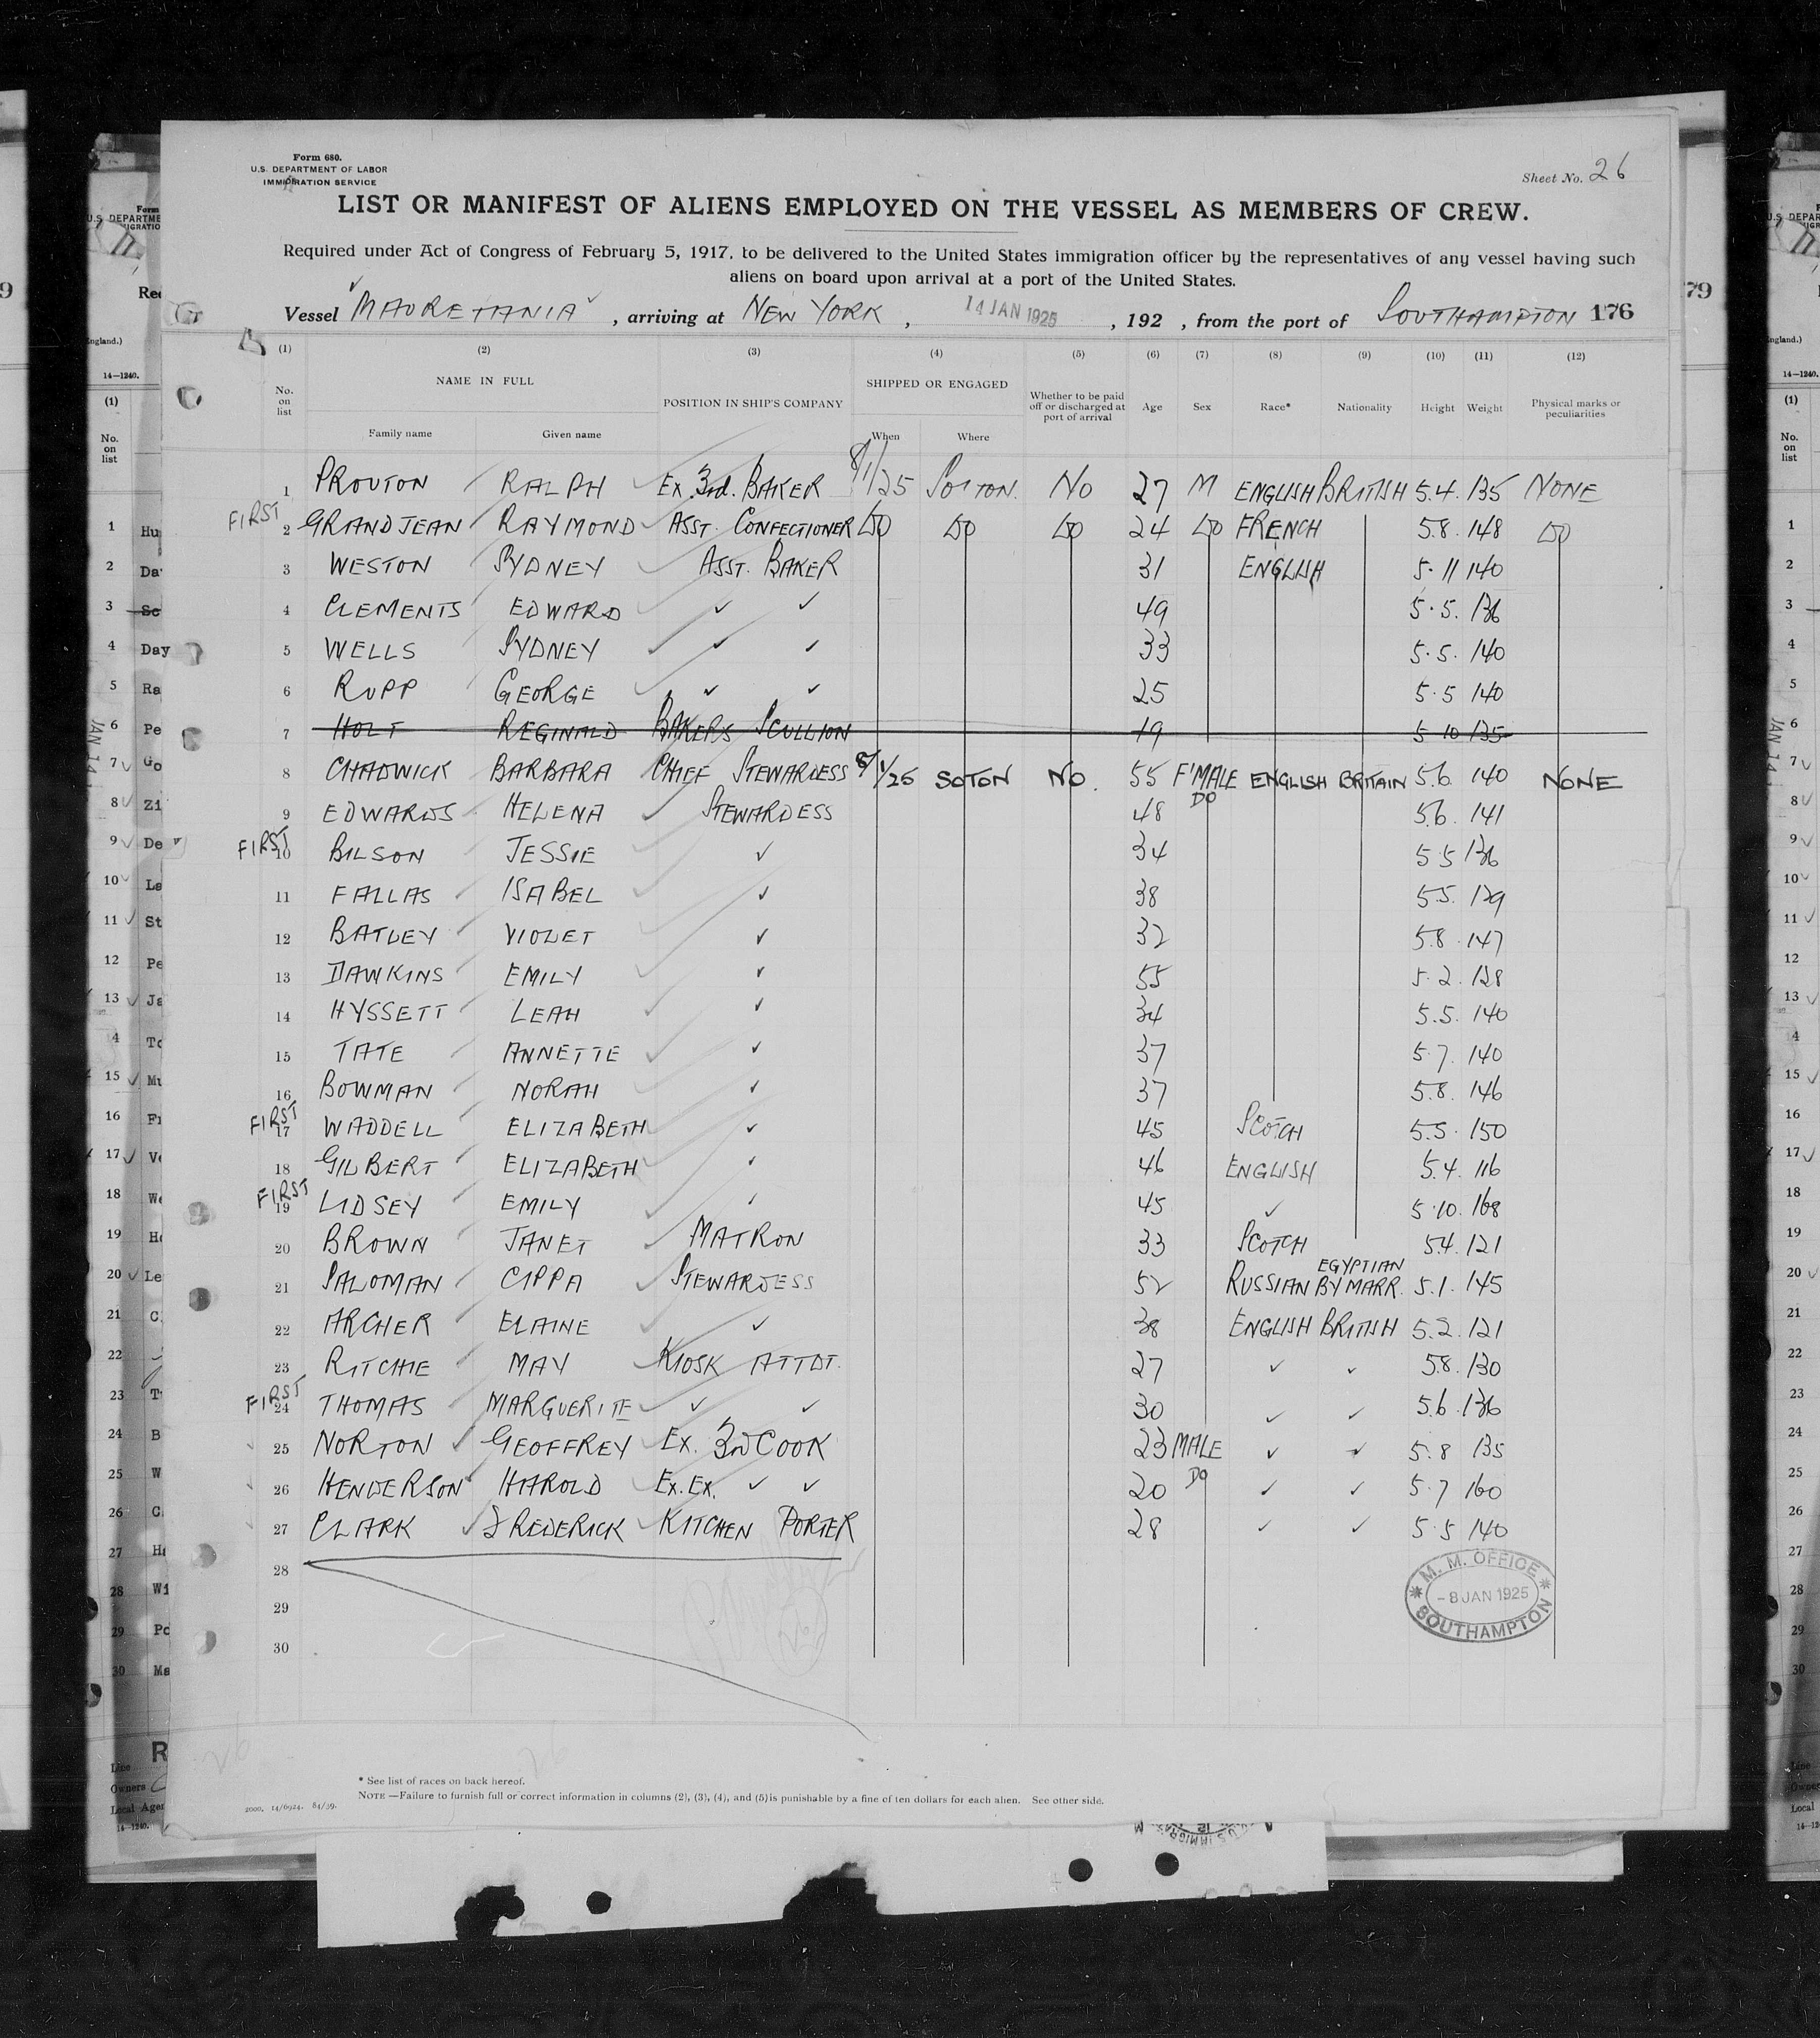 Form 680.
U.S. DEPARTMENT OF LABOR
IMMIGRATION SERVICE
Sheet No. 26
LIST OR MANIFEST OF ALIENS EMPLOYED ON THE VESSEL AS MEMBERS OF CREW.
Required under Act of Congress of February 5, 1917, to be delivered to the United States immigration officer by the representatives of any vessel having such
aliens on board upon arrival at a port of the United States.
Vessel MAURETANIA, arriving at NEW YORK, 14 JAN 1925, 192 , from the port of SOUTHAMPTON 176
(1) (2) (3) (4) (5) (6) (7) (8) (9) (10) (11) (12)
No. on list NAME IN FULL POSITION IN SHIP'S COMPANY SHIPPED OR ENGAGED Whether to be paid off or discharged at port of arrival Age Sex Race* Nationality Height Weight Physical marks or peculiarities
Family name Given name When Where
1 PROUTON RALPH Ex. 3rd. BAKER 8/1/25 SOTON. NO 27 M ENGLISH BRITISH 5.4. 135 NONE
FIRST 2 GRANDJEAN RAYMOND ASST. CONFECTIONER DO DO DO 24 DO FRENCH 5.8. 148 DO
3 WESTON SYDNEY ASST. BAKER 31 ENGLISH 5.11 140
4 CLEMENTS EDWARD ✓ ✓ 49 5.5. 136
5 WELLS SYDNEY ✓ ✓ 33 5.5. 140
6 RUPP GEORGE ✓ ✓ 25 5.5 140
7 HOLT REGINALD BAKERS SCULLION 19 5 10 135
8 CHADWICK BARBARA CHIEF STEWARDESS 8/1/25 SOTON NO. 55 F'MALE ENGLISH BRITAIN 5.6. 140 NONE
9 EDWARDS HELENA STEWARDESS 48 DO 5.6. 141
FIRST 10 BILSON JESSIE ✓ 34 5.5 136
11 FALLAS ISABEL ✓ 38 5.5. 129
12 BATLEY VIOLET ✓ 32 5.8. 147
13 DAWKINS EMILY ✓ 55 5.2. 128
14 HYSSETT LEAH ✓ 34 5.5. 140
15 TATE ANNETTE ✓ 37 5.7. 140
16 BOWMAN NORAH ✓ 37 5.8. 146
FIRST 17 WADDELL ELIZABETH ✓ 45 SCOTCH 5.5. 150
18 GILBERT ELIZABETH ✓ 46 ENGLISH 5.4. 116
FIRST 19 LIDSEY EMILY ✓ 45 ✓ 5.10. 168
20 BROWN JANET MATRON 33 SCOTCH 5.4. 121
21 SALOMAN CIPPA STEWARDESS 52 RUSSIAN EGYPTIAN BY MARR. 5.1. 145
22 ARCHER ELAINE ✓ 38 ENGLISH BRITISH 5.2. 121
23 RITCHIE MAY KIOSK ATTDT. 27 ✓ ✓ 5.8. 130
FIRST 24 THOMAS MARGUERITE ✓ ✓ 30 ✓ ✓ 5.6. 136
25 NORTON GEOFFREY Ex. 3rd COOK 23 MALE ✓ ✓ 5.8 135
26 HENDERSON HAROLD Ex. Ex. ✓ ✓ 20 DO ✓ ✓ 5.7 160
27 CLARK FREDERICK KITCHEN PORTER 28 ✓ ✓ 5.5 140
28
29
30
M. M. OFFICE
-8 JAN 1925
SOUTHAMPTON
* See list of races on back hereof.
NOTE —Failure to furnish full or correct information in columns (2), (3), (4), and (5) is punishable by a fine of ten dollars for each alien. See other side.
2000. 14/6924. 84/39.